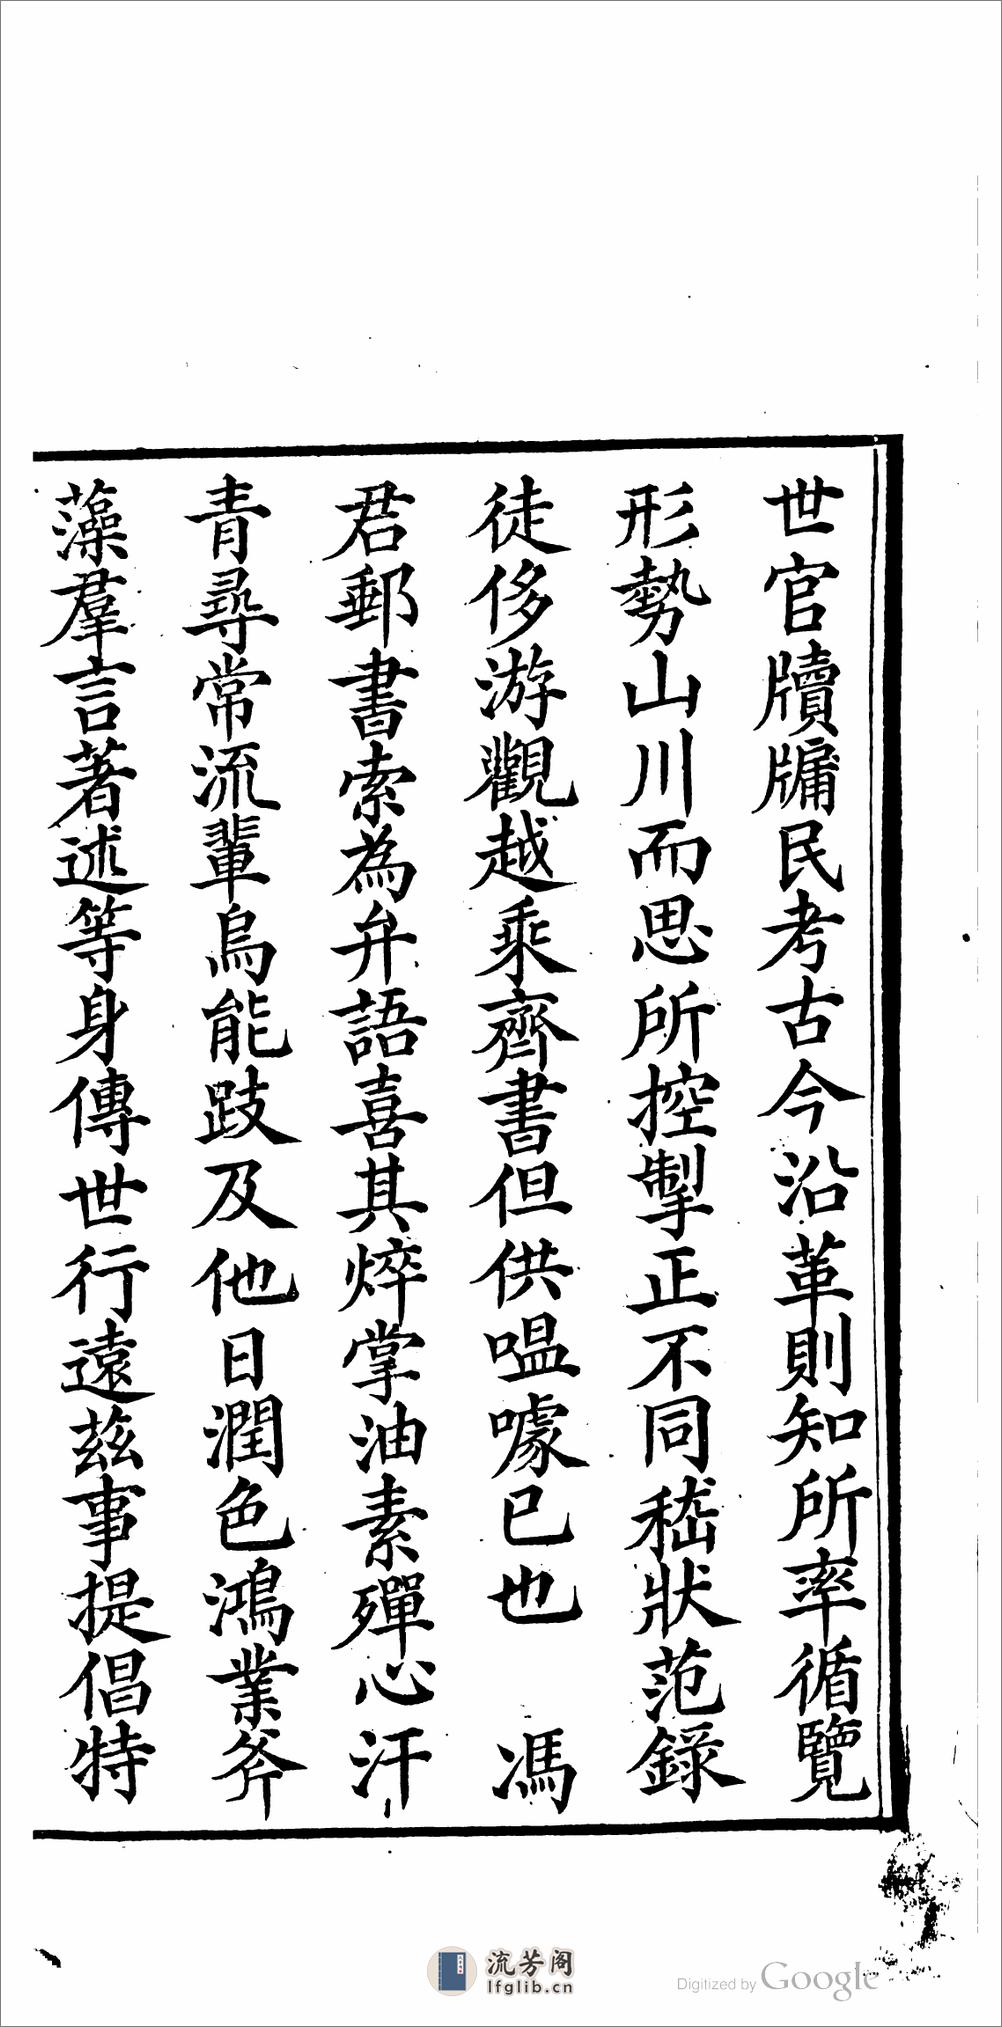 世官牘牗民考古今沿革則知所率循覽
形勢山川而思所控掣正不同嵇狀范錄
徒侈游觀越乘齊書但供嗢噱已也　馮
君郵書索為弁語喜其焠掌油素殫心汗
青尋常流輩烏能跂及他日潤色鴻業斧
藻羣言著述等身傳世行遠茲事提倡特
流芳阁
lfglib.cn
Digitized by Google